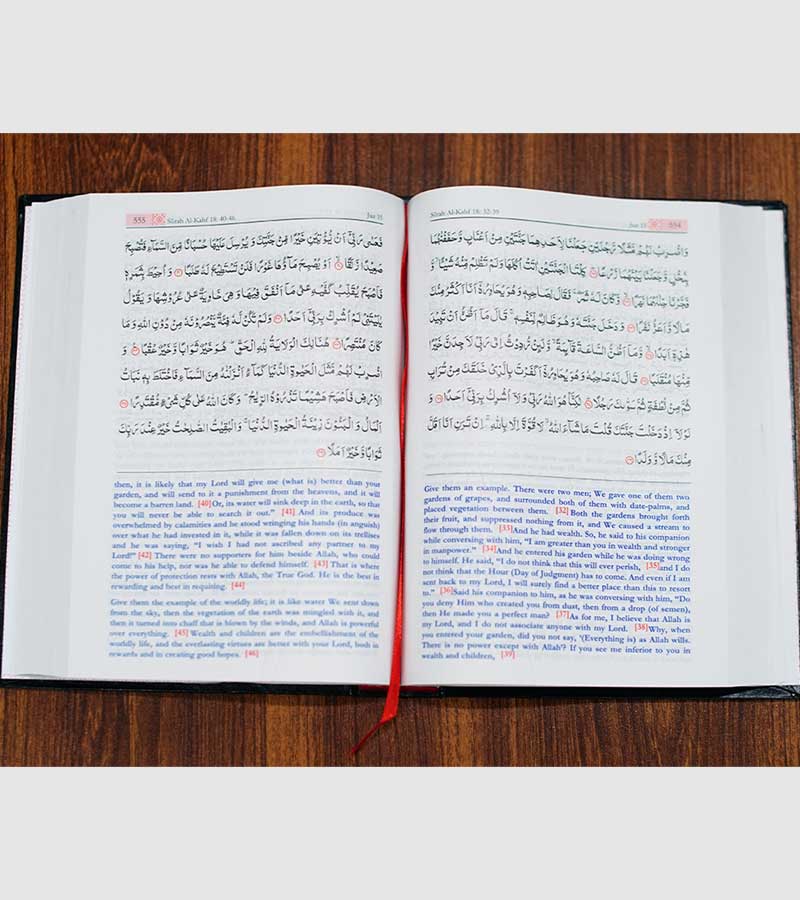 Sūrah Al-Kahf 18: 32-39
Juz 15
554
وَاضْرِبْ لَهُمْ مَّثَلًا رَّجُلَيْنِ جَعَلْنَا لِاَحَدِهِمَا جَنَّتَيْنِ مِنْ اَعْنَابٍ وَّحَفَفْنٰهُمَا
بِنَخْلٍ وَّجَعَلْنَا بَيْنَهُمَا زَرْعًا ۝۳۲ كِلْتَا الْجَنَّتَيْنِ اٰتَتْ اُكُلَهَا وَلَمْ تَظْلِمْ مِّنْهُ شَيْـًٔا ۙ وَّ
فَجَّرْنَا خِلٰلَهُمَا نَهَرًا ۝۳۳ وَّكَانَ لَهٗ ثَمَرٌ ۚ فَقَالَ لِصَاحِبِهٖ وَهُوَ يُحَاوِرُهٗٓ اَنَا اَكْثَرُ مِنْكَ
مَالًا وَّاَعَزُّ نَفَرًا ۝۳۴ وَدَخَلَ جَنَّتَهٗ وَهُوَ ظَالِمٌ لِّنَفْسِهٖ ۚ قَالَ مَآ اَظُنُّ اَنْ تَبِيْدَ
هٰذِهٖٓ اَبَدًا ۝۳۵ وَّمَآ اَظُنُّ السَّاعَةَ قَآئِمَةً ۙ وَّلَئِنْ رُّدِدْتُّ اِلٰى رَبِّيْ لَاَجِدَنَّ خَيْرًا
مِّنْهَا مُنْقَلَبًا ۝۳۶ قَالَ لَهٗ صَاحِبُهٗ وَهُوَ يُحَاوِرُهٗٓ اَكَفَرْتَ بِالَّذِيْ خَلَقَكَ مِنْ تُرَابٍ
ثُمَّ مِنْ نُّطْفَةٍ ثُمَّ سَوّٰىكَ رَجُلًا ۝۳۷ لٰكِنَّا۠ هُوَ اللّٰهُ رَبِّيْ وَلَآ اُشْرِكُ بِرَبِّيْٓ اَحَدًا ۝۳۸ وَ
لَوْلَآ اِذْ دَخَلْتَ جَنَّتَكَ قُلْتَ مَا شَآءَ اللّٰهُ ۙ لَا قُوَّةَ اِلَّا بِاللّٰهِ ۚ اِنْ تَرَنِ اَنَا اَقَلَّ
مِنْكَ مَالًا وَّوَلَدًا ۝۳۹
Give them an example. There were two men; We gave one of them two
gardens of grapes, and surrounded both of them with date-palms, and
placed vegetation between them. [32] Both the gardens brought forth
their fruit, and suppressed nothing from it, and We caused a stream to
flow through them. [33]And he had wealth. So, he said to his companion
while conversing with him, “I am greater than you in wealth and stronger
in manpower.” [34]And he entered his garden while he was doing wrong
to himself. He said, “I do not think that this will ever perish, [35]and I do
not think that the Hour (Day of Judgment) has to come. And even if I am
sent back to my Lord, I will surely find a better place than this to resort
to.” [36]Said his companion to him, as he was conversing with him, “Do
you deny Him who created you from dust, then from a drop (of semen),
then He made you a perfect man? [37]As for me, I believe that Allah is
my Lord, and I do not associate anyone with my Lord. [38]Why, when
you entered your garden, did you not say, ‘(Everything is) as Allah wills.
There is no power except with Allah’? If you see me inferior to you in
wealth and children, [39]
555
Sūrah Al-Kahf 18: 40-46
Juz 15
فَعَسٰى رَبِّيْٓ اَنْ يُّؤْتِيَنِ خَيْرًا مِّنْ جَنَّتِكَ وَيُرْسِلَ عَلَيْهَا حُسْبَانًا مِّنَ السَّمَآءِ فَتُصْبِحَ
صَعِيْدًا زَلَقًا ۝۴۰ اَوْ يُصْبِحَ مَآؤُهَا غَوْرًا فَلَنْ تَسْتَطِيْعَ لَهٗ طَلَبًا ۝۴۱ وَاُحِيْطَ بِثَمَرِهٖ
فَاَصْبَحَ يُقَلِّبُ كَفَّيْهِ عَلٰى مَآ اَنْفَقَ فِيْهَا وَهِيَ خَاوِيَةٌ عَلٰى عُرُوْشِهَا وَيَقُوْلُ
يٰلَيْتَنِيْ لَمْ اُشْرِكْ بِرَبِّيْٓ اَحَدًا ۝۴۲ وَلَمْ تَكُنْ لَّهٗ فِئَةٌ يَّنْصُرُوْنَهٗ مِنْ دُوْنِ اللّٰهِ وَمَا
كَانَ مُنْتَصِرًا ۝۴۳ هُنَالِكَ الْوَلَايَةُ لِلّٰهِ الْحَقِّ ۚ هُوَ خَيْرٌ ثَوَابًا وَّخَيْرٌ عُقْبًا ۝۴۴ وَ
اضْرِبْ لَهُمْ مَّثَلَ الْحَيٰوةِ الدُّنْيَا كَمَآءٍ اَنْزَلْنٰهُ مِنَ السَّمَآءِ فَاخْتَلَطَ بِهٖ نَبَاتُ
الْاَرْضِ فَاَصْبَحَ هَشِيْمًا تَذْرُوْهُ الرِّيٰحُ ۚ وَكَانَ اللّٰهُ عَلٰى كُلِّ شَيْءٍ مُّقْتَدِرًا ۝۴۵
اَلْمَالُ وَالْبَنُوْنَ زِيْنَةُ الْحَيٰوةِ الدُّنْيَا ۚ وَالْبٰقِيٰتُ الصّٰلِحٰتُ خَيْرٌ عِنْدَ رَبِّكَ
ثَوَابًا وَّخَيْرٌ اَمَلًا ۝۴۶
then, it is likely that my Lord will give me (what is) better than your
garden, and will send to it a punishment from the heavens, and it will
become a barren land. [40]Or, its water will sink deep in the earth, so that
you will never be able to search it out.” [41] And its produce was
overwhelmed by calamities and he stood wringing his hands (in anguish)
over what he had invested in it, while it was fallen down on its trellises
and he was saying, “I wish I had not ascribed any partner to my
Lord!” [42] There were no supporters for him beside Allah, who could
come to his help, nor was he able to defend himself. [43] That is where
the power of protection rests with Allah, the True God. He is the best in
rewarding and best in requiring. [44]
Give them the example of the worldly life; it is like water We sent down
from the sky, then the vegetation of the earth was mingled with it, and
then it turned into chaff that is blown by the winds, and Allah is powerful
over everything. [45] Wealth and children are the embellishment of the
worldly life, and the everlasting virtues are better with your Lord, both in
rewards and in creating good hopes. [46]